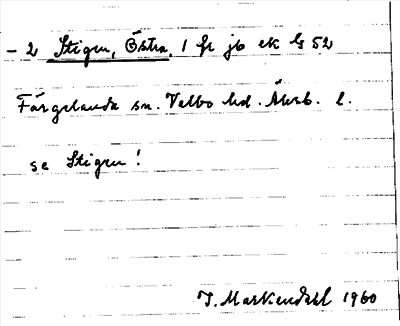 - 2 Stigen, Östra 1 fr jb ek bl 52
Färgelanda sn. Valbo hd. Älvsb. l.
se Stigen!
J. Markendahl 1960